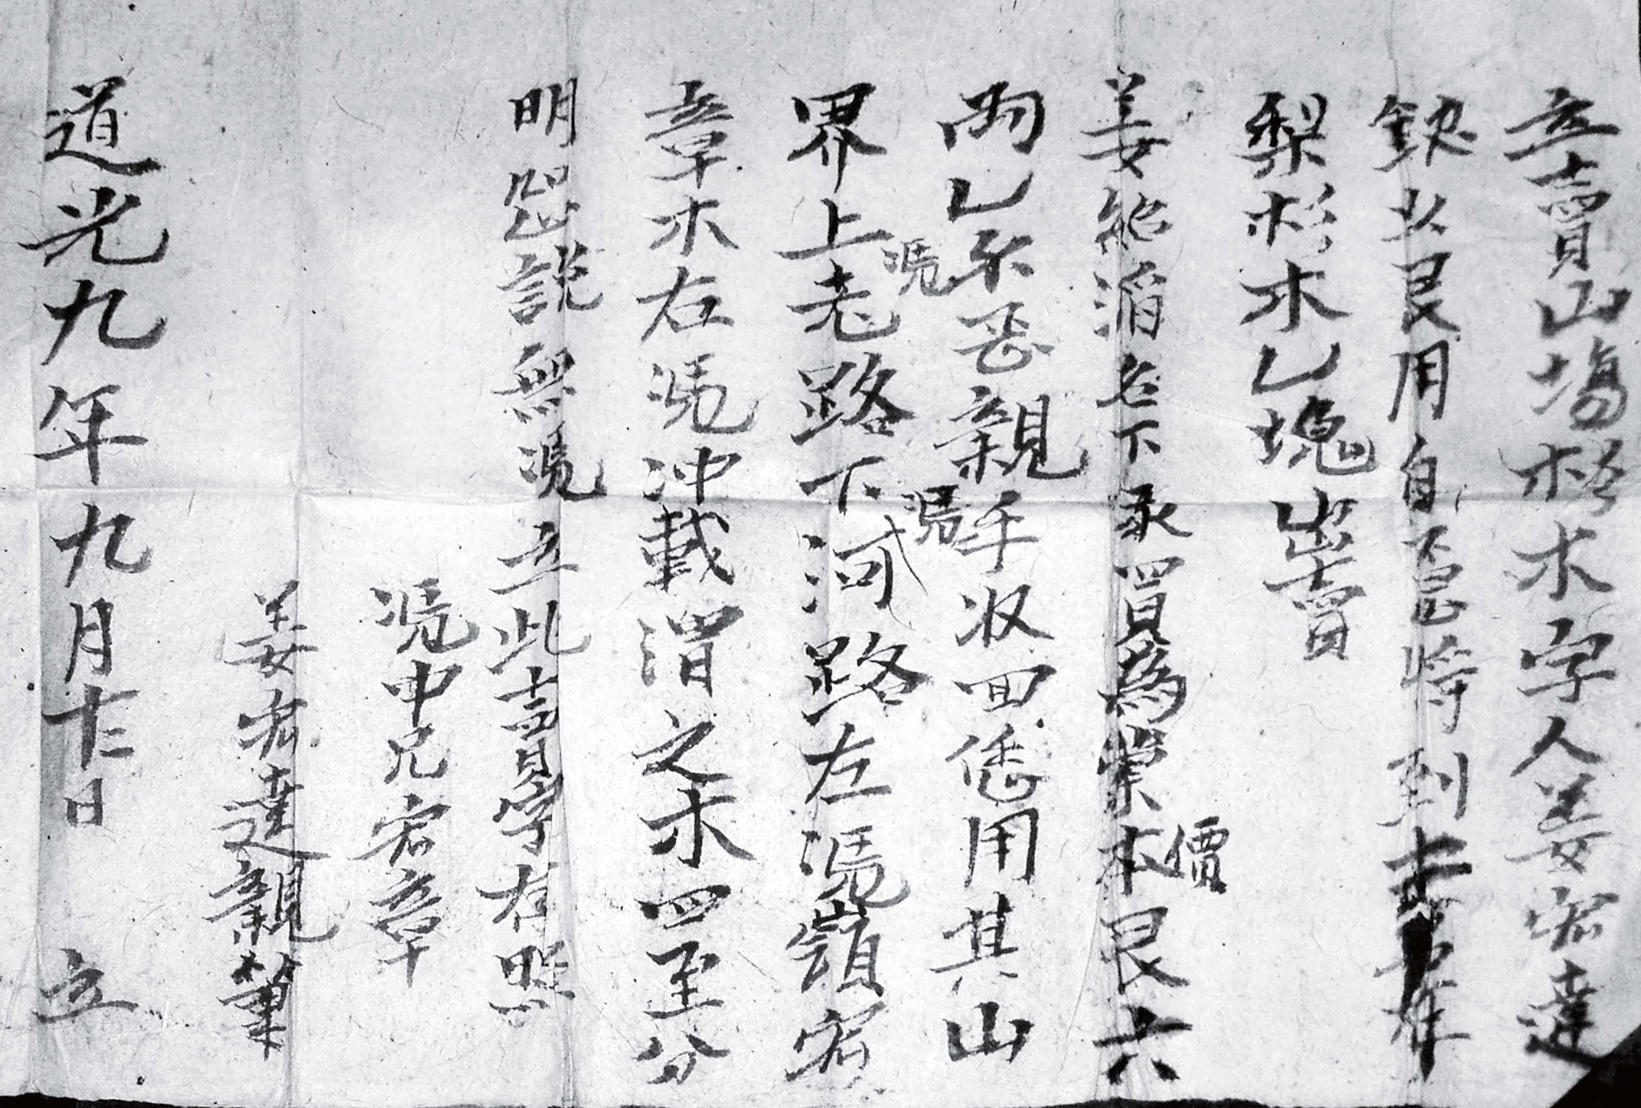 立賣山場杉木字人姜宏達
缺少艮用自愿將到土名在
梨杉木乙塊出賣
姜紹滔名下承買為業木價艮六
兩乙不忌親手收回恁用其山
界上憑老路下憑河路左憑嶺宏
章木右憑冲載渭之木四至分
明恐說無憑立此賣字存照
憑中兄宏章
姜宏達親筆
道光九年九月廿二日 立